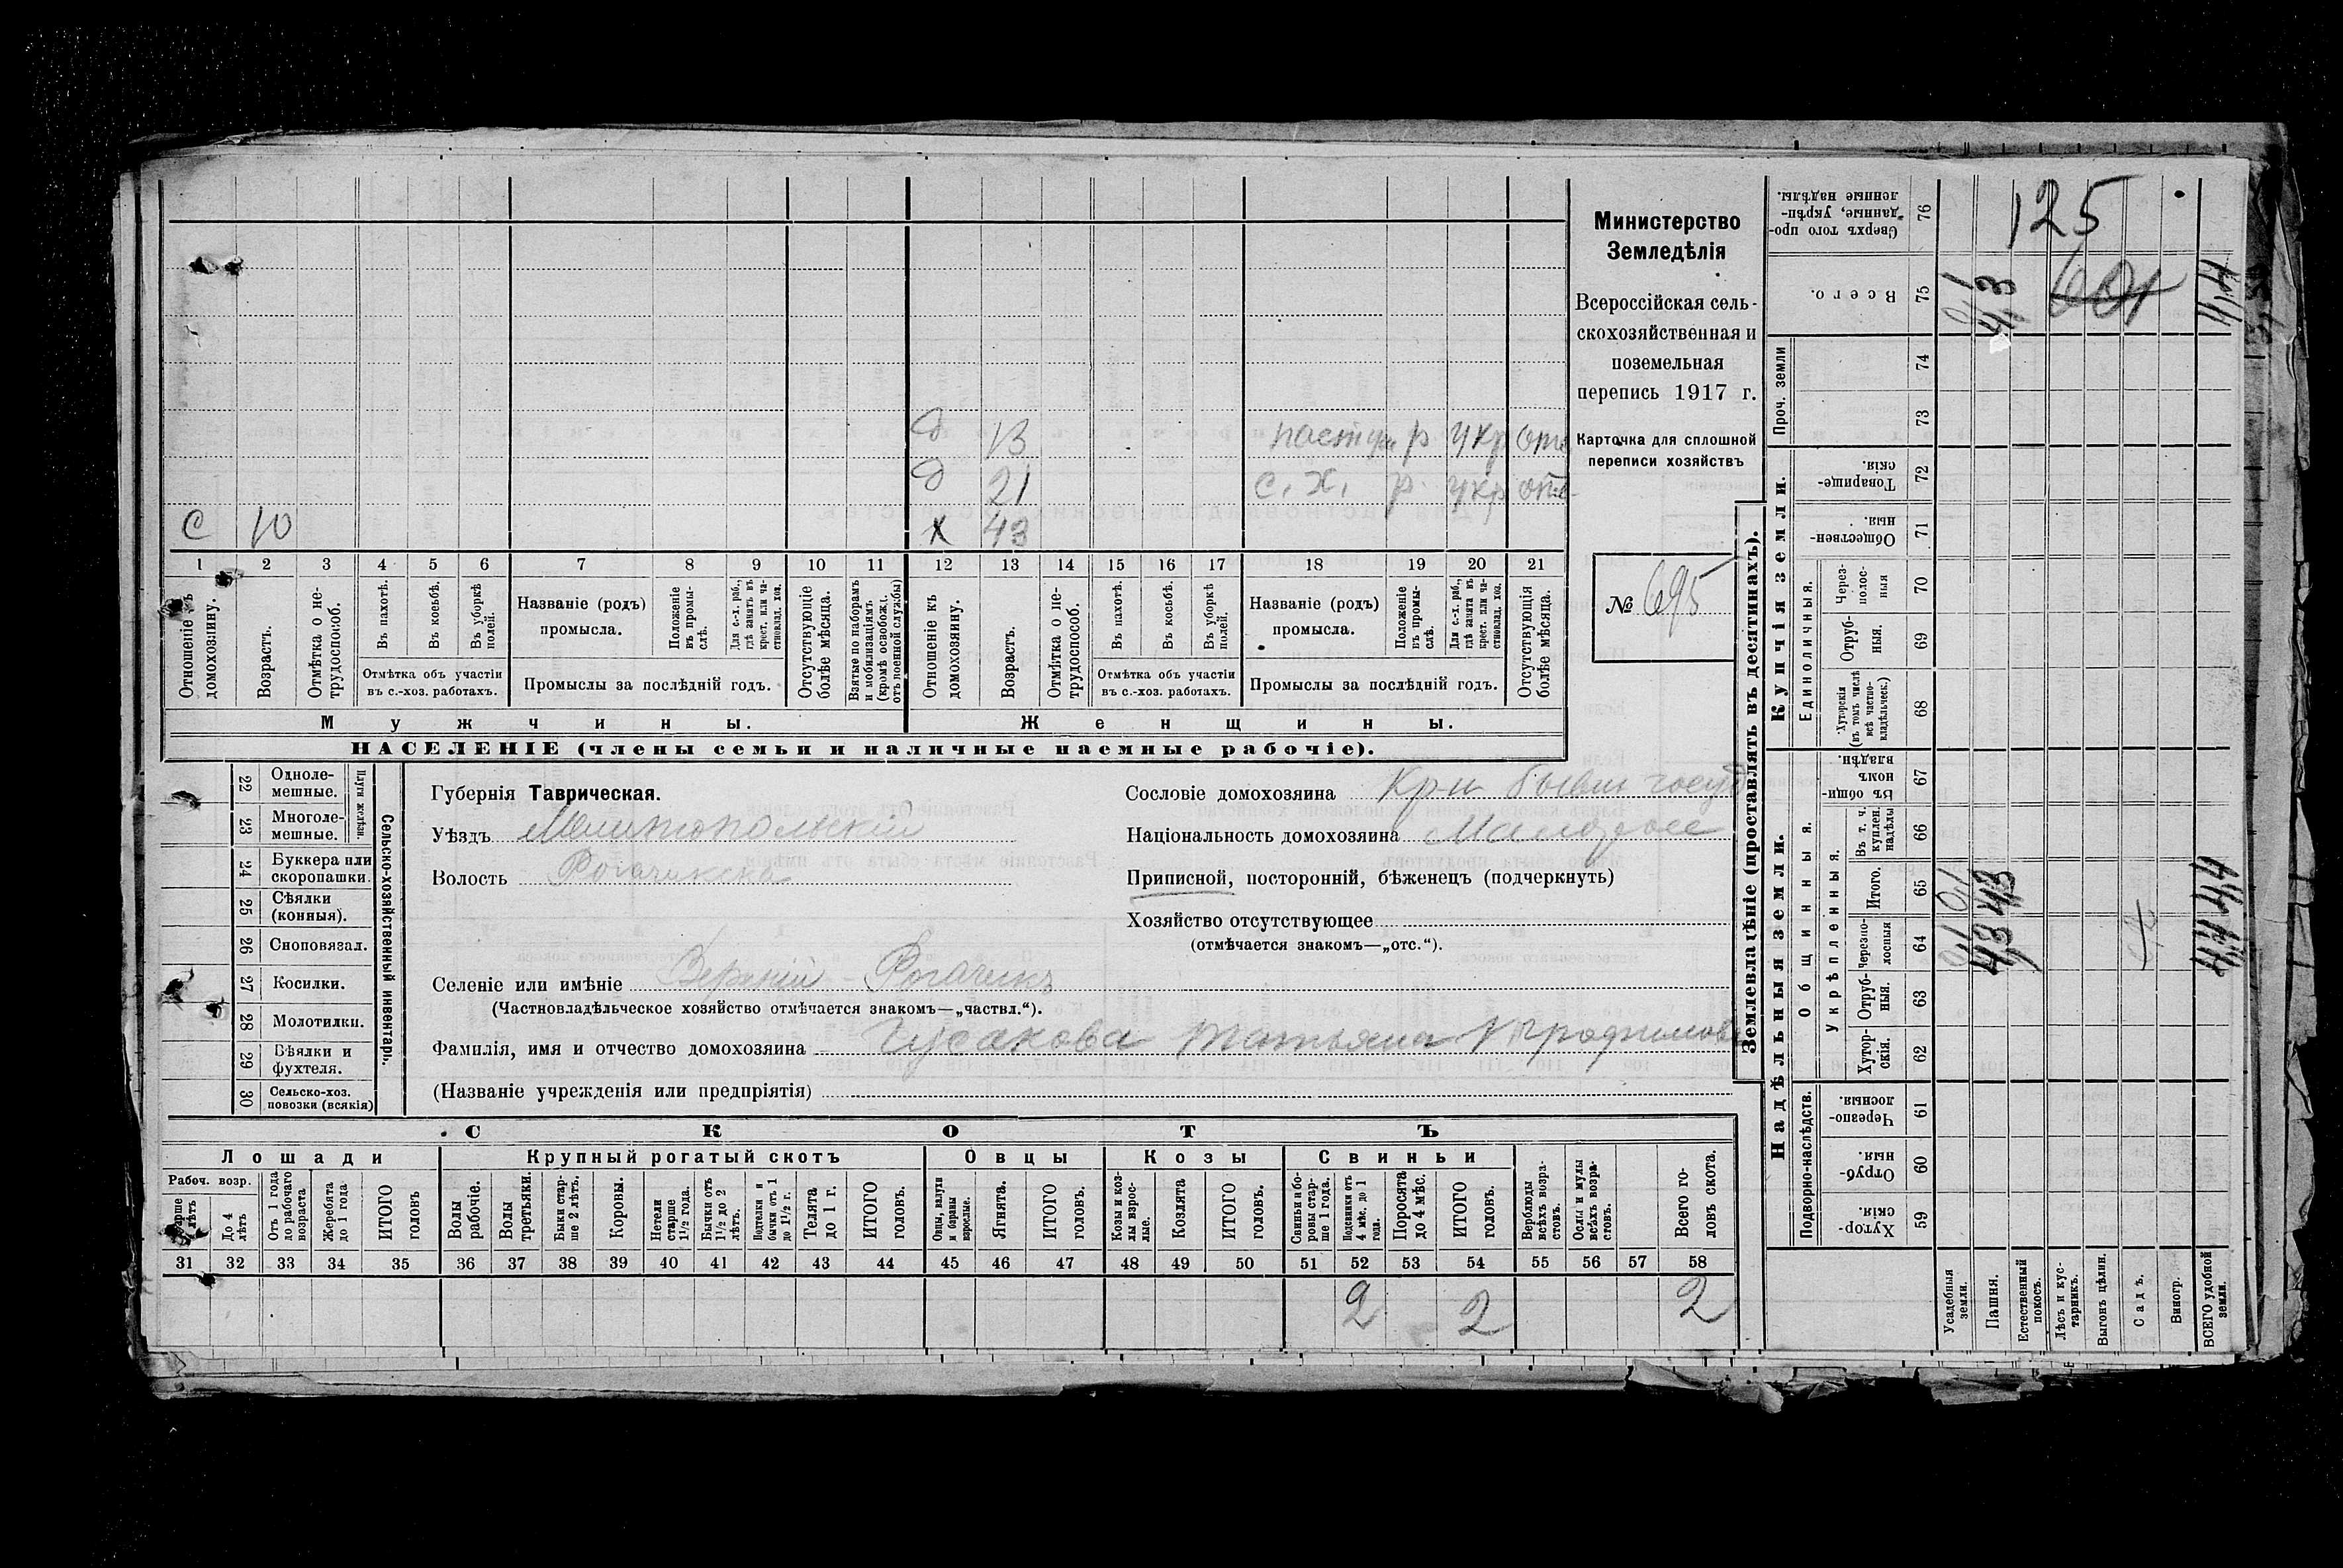 Министерство
Земледѣлія
Всероссійская сель-
скохозяйственная и
поземельная
перепись 1917 г.
Карточка для сплошной
переписи хозяйствъ
№ 695
д 13 р укр
д 21 с. х. р. укр
с 10 х 43
1 2 3 4 5 6 7 8 9 10 11 12 13 14 15 16 17 18 19 20 21
Отношеніе къ домохозяину.
Возрастъ.
Отмѣтка о не-
трудоспособ.
Въ пахотѣ.
Въ косьбѣ.
Въ уборкѣ
полей.
Отмѣтка объ участіи
въ с.-хоз. работахъ.
Названіе (родъ)
промысла.
Положеніе
въ промы-
слѣ.
Для с.-х. раб.,
гдѣ занятъ въ
крест. или ча-
стновлад. хоз.
Промыслы за послѣдній годъ.
Отсутствующіе
болѣе мѣсяца.
Взятые по наборамъ
и мобилизаціямъ
(кромѣ освобожд.
отъ военной службы)
Отношеніе къ
домохозяину.
Возрастъ.
Отмѣтка о не-
трудоспособ.
Въ пахотѣ.
Въ косьбѣ.
Въ уборкѣ
полей.
Отмѣтка объ участіи
въ с.-хоз. работахъ.
Названіе (родъ)
промысла.
Положеніе
въ промы-
слѣ.
Для с.-х. раб.,
гдѣ занята въ
крест. или ча-
стновлад. хоз.
Промыслы за послѣдній годъ.
Отсутствующія
болѣе мѣсяца.
Мужчины. Женщины.
НАСЕЛЕНІЕ (члены семьи и наличные наемные рабочіе).
22 Одноле-
мешные.
23 Многоле-
мешные.
Плуги желѣзн.
24 Буккера или
скоропашки.
25 Сѣялки
(конныя).
26 Сноповязал.
27 Косилки.
28 Молотилки.
29 Вѣялки и
фухтеля.
30 Сельско-хоз.
повозки (всякія)
Сельско-хозяйственный инвентарь.
Губернія Таврическая.
Уѣздъ Мелитопольскій
Волость Рогачикска
Селеніе или имѣніе Верхній - Рогачикъ
(Частновладѣльческое хозяйство отмѣчается знакомъ—„частвл.“).
Фамилія, имя и отчество домохозяина Гусакова Татьяна
(Названіе учрежденія или предпріятія)
Сословіе домохозяина Кр-н бывш госуд
Національность домохозяина Малорос
Приписной, посторонній, бѣженецъ (подчеркнуть)
Хозяйство отсутствующее
(отмѣчается знакомъ—„отс.“).
СКОТЪ
Лошади Крупный рогатый скотъ Овцы Козы Свиньи
Рабоч. возр.
Старше
4 лѣтъ
До 4
лѣтъ
Отъ 1 года
до рабочаго
возраста
Жеребята
до 1 года
ИТОГО
головъ
Волы
рабочіе.
Волы
третьяки.
Быки стар-
ше 2 лѣтъ.
Коровы.
Нетели
старше
1½ года.
Бычки отъ
1½ до 2
лѣтъ.
Подтелки и
бычки отъ 1
до 1½ г.
Телята
до 1 г.
ИТОГО
головъ.
Овцы, валухи
и бараны
взрослые.
Ягнята.
ИТОГО
головъ.
Козы и коз-
лы взрос-
лые.
Козлята
ИТОГО
головъ.
Свиньи и бо-
ровы стар-
ше 1 года.
Подсвинки отъ
4 мѣс. до 1
года.
Поросята
до 4 мѣс.
ИТОГО
головъ.
Верблюды
всѣхъ возра-
стовъ.
Ослы и мулы
всѣхъ возра-
стовъ.
Всего го-
ловъ скота.
31 32 33 34 35 36 37 38 39 40 41 42 43 44 45 46 47 48 49 50 51 52 53 54 55 56 57 58
2 2 2
Землевладѣніе (проставлять въ десятинахъ).
Надѣльныя земли. Купчія земли. Проч. земли
Подворно-наслѣдств.
Общинныя.
Укрѣпленныя.
Единоличныя.
Хутор-
скія. 59
Отруб-
ныя. 60
Черезпо-
лосныя. 61
Хутор-
скія. 62
Отруб-
ныя. 63
Черезпо-
лосныя 64
Итого. 65
Въ т. ч.
куплен.
надѣлы 66
Въ общин-
номъ
владѣн. 67
Хуторскія
(въ томъ числѣ
всѣ частно-
владѣльческ.) 68
Отруб-
ныя. 69
Через-
полос-
ныя 70
Обществен-
ныя. 71
Товарище-
скія. 72
73
74
Всего. 75
Сверхъ того про-
данные, укрѣп-
ленные надѣлы. 76
125
Усадебныя
земли.
Пашня.
Естественный
покосъ.
Лѣсъ и кус-
тарникъ.
Выгонъ цѣлин.
Садъ.
Виногр.
ВСЕГО удобной
земли.
0,1 0,1 0,1
4,3 4,3 4,3
4,4 4,4 4,4